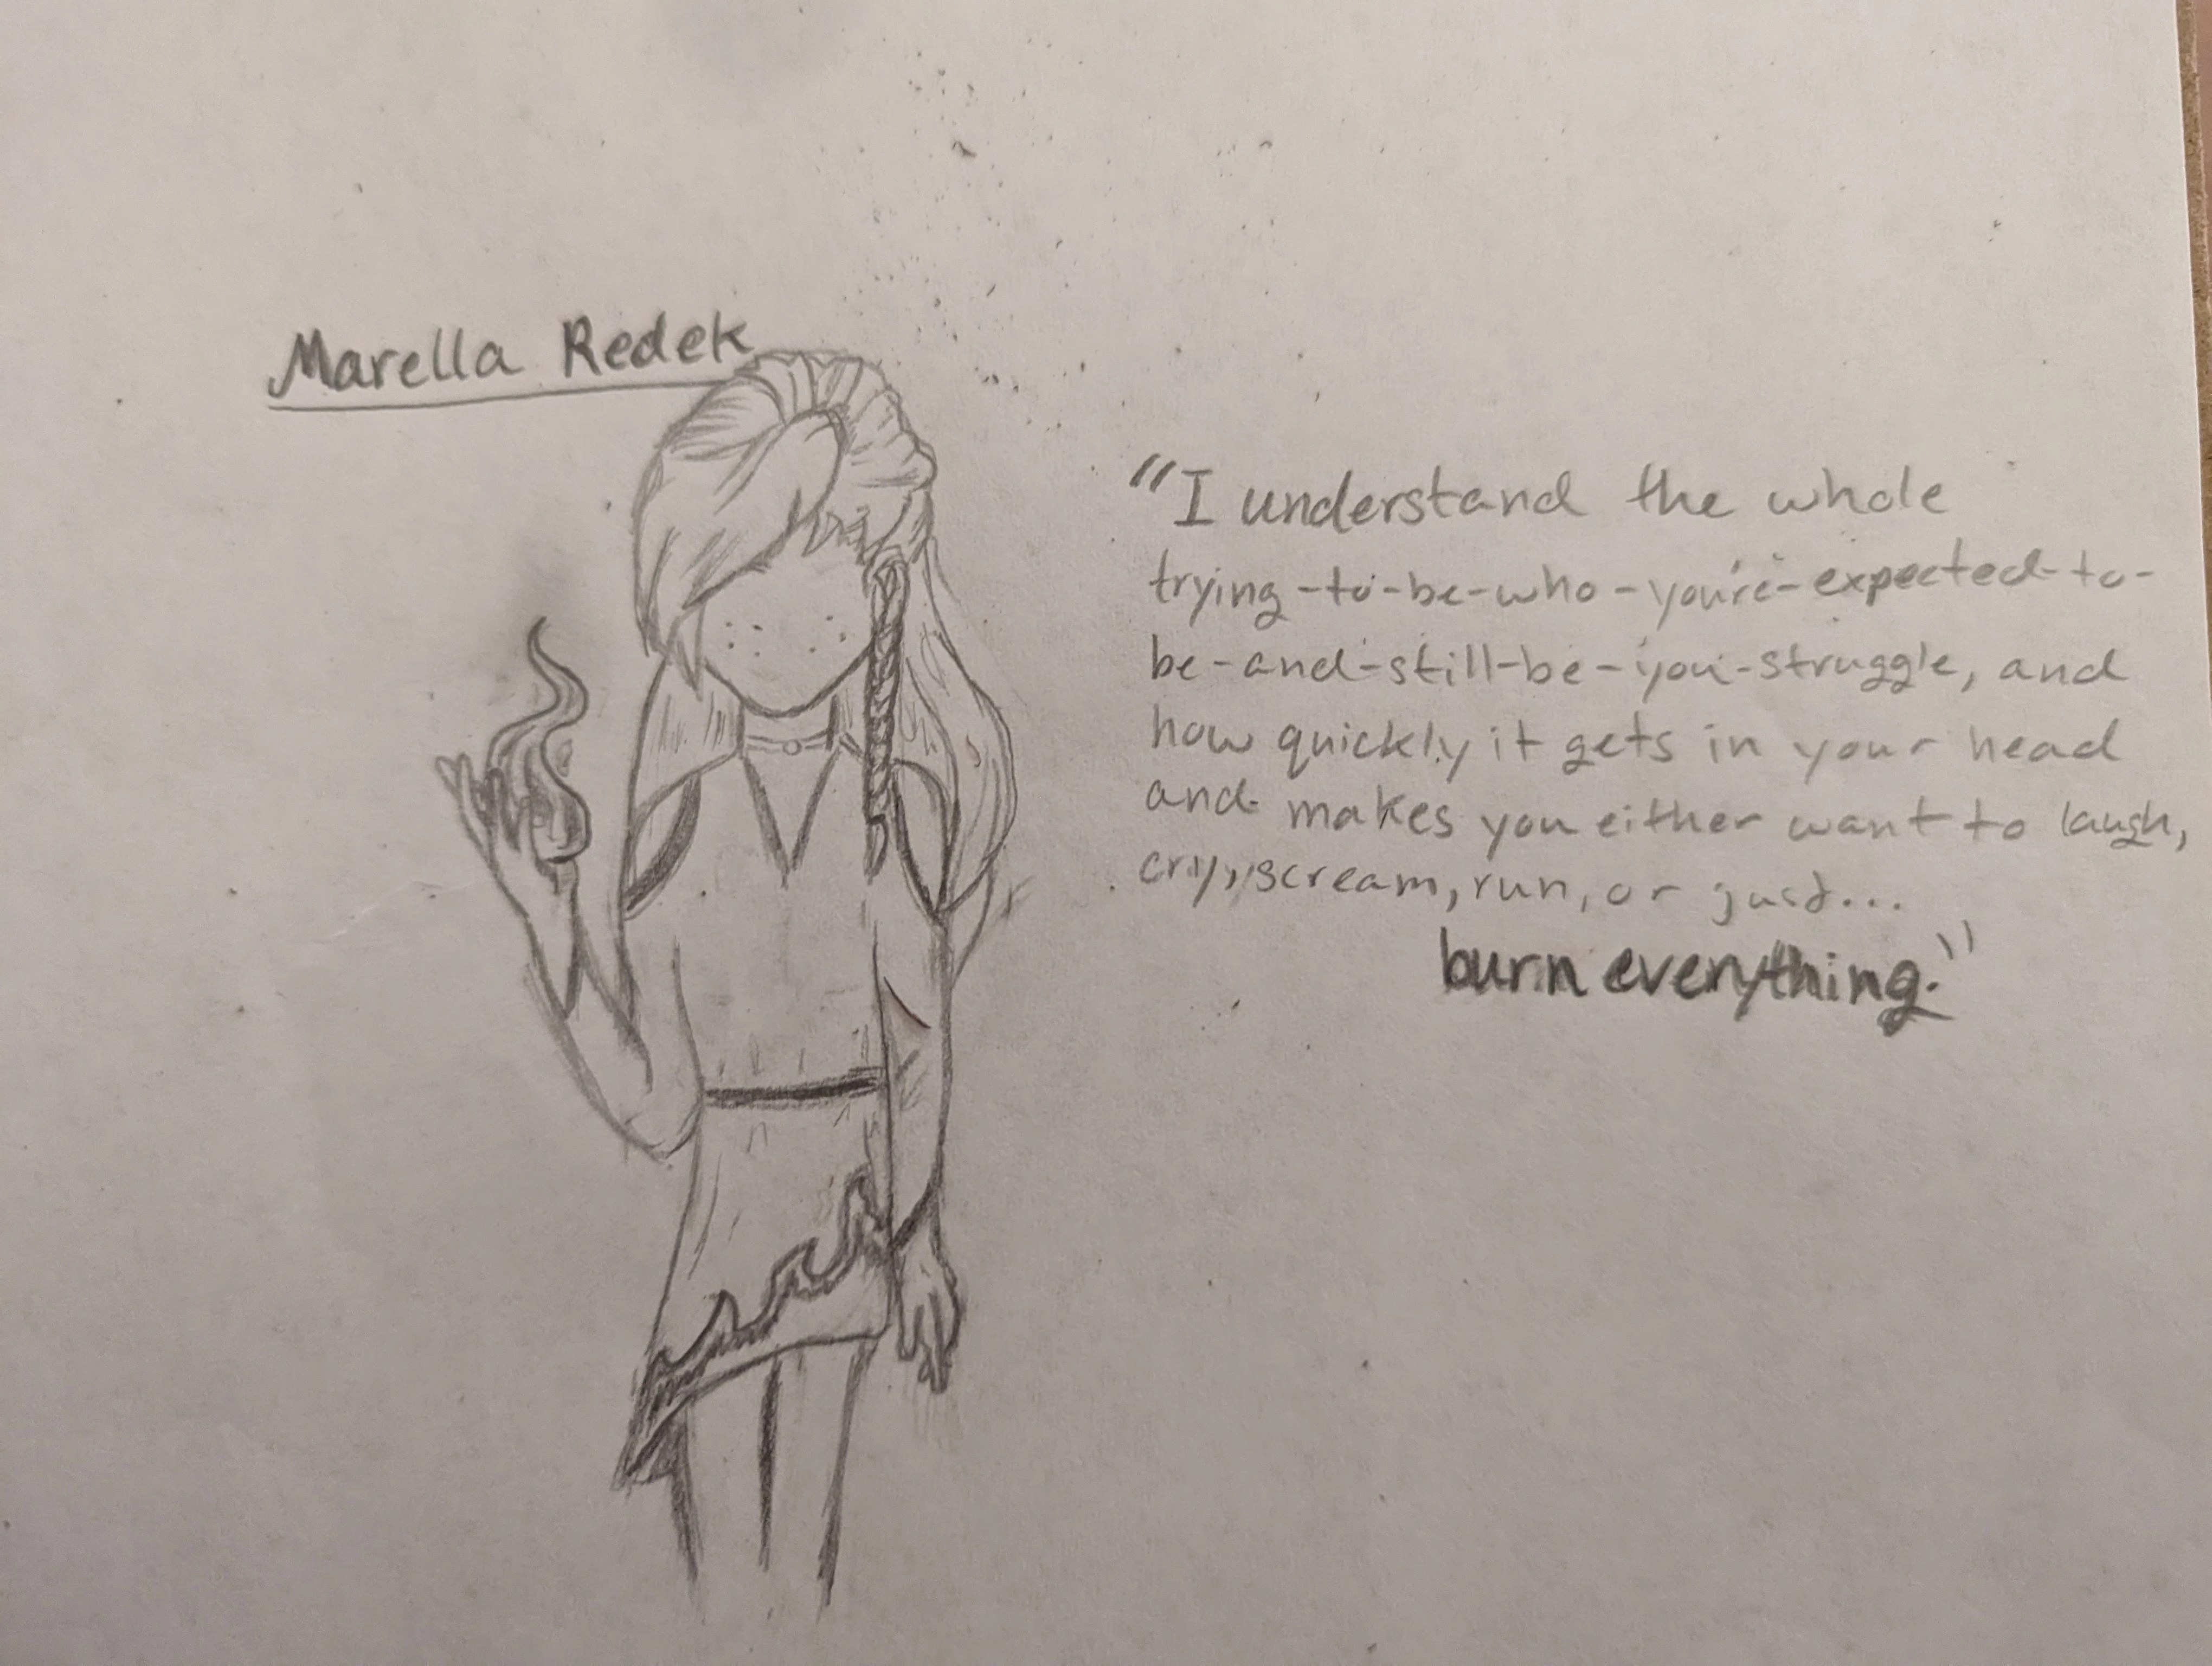 Marella Redek
"I understand the whole
trying-to-be-who-you're-expected-to-
be-and-still-be-you-struggle, and
how quickly it gets in your head
and makes you either want to laugh,
cry, scream, run, or just...
burn everything."